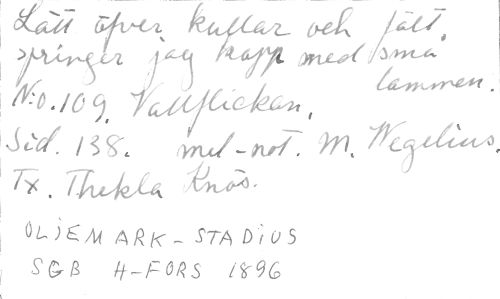 Lätt öfver kullar och fält,
springer jag kapp med små
lammen.
N:o. 109. Vallflickan.
Sid. 138. mel-not. M. Wegelius.
Tx. Thekla Knös.
OLJEMARK-STADIUS
SGB H-FORS 1896